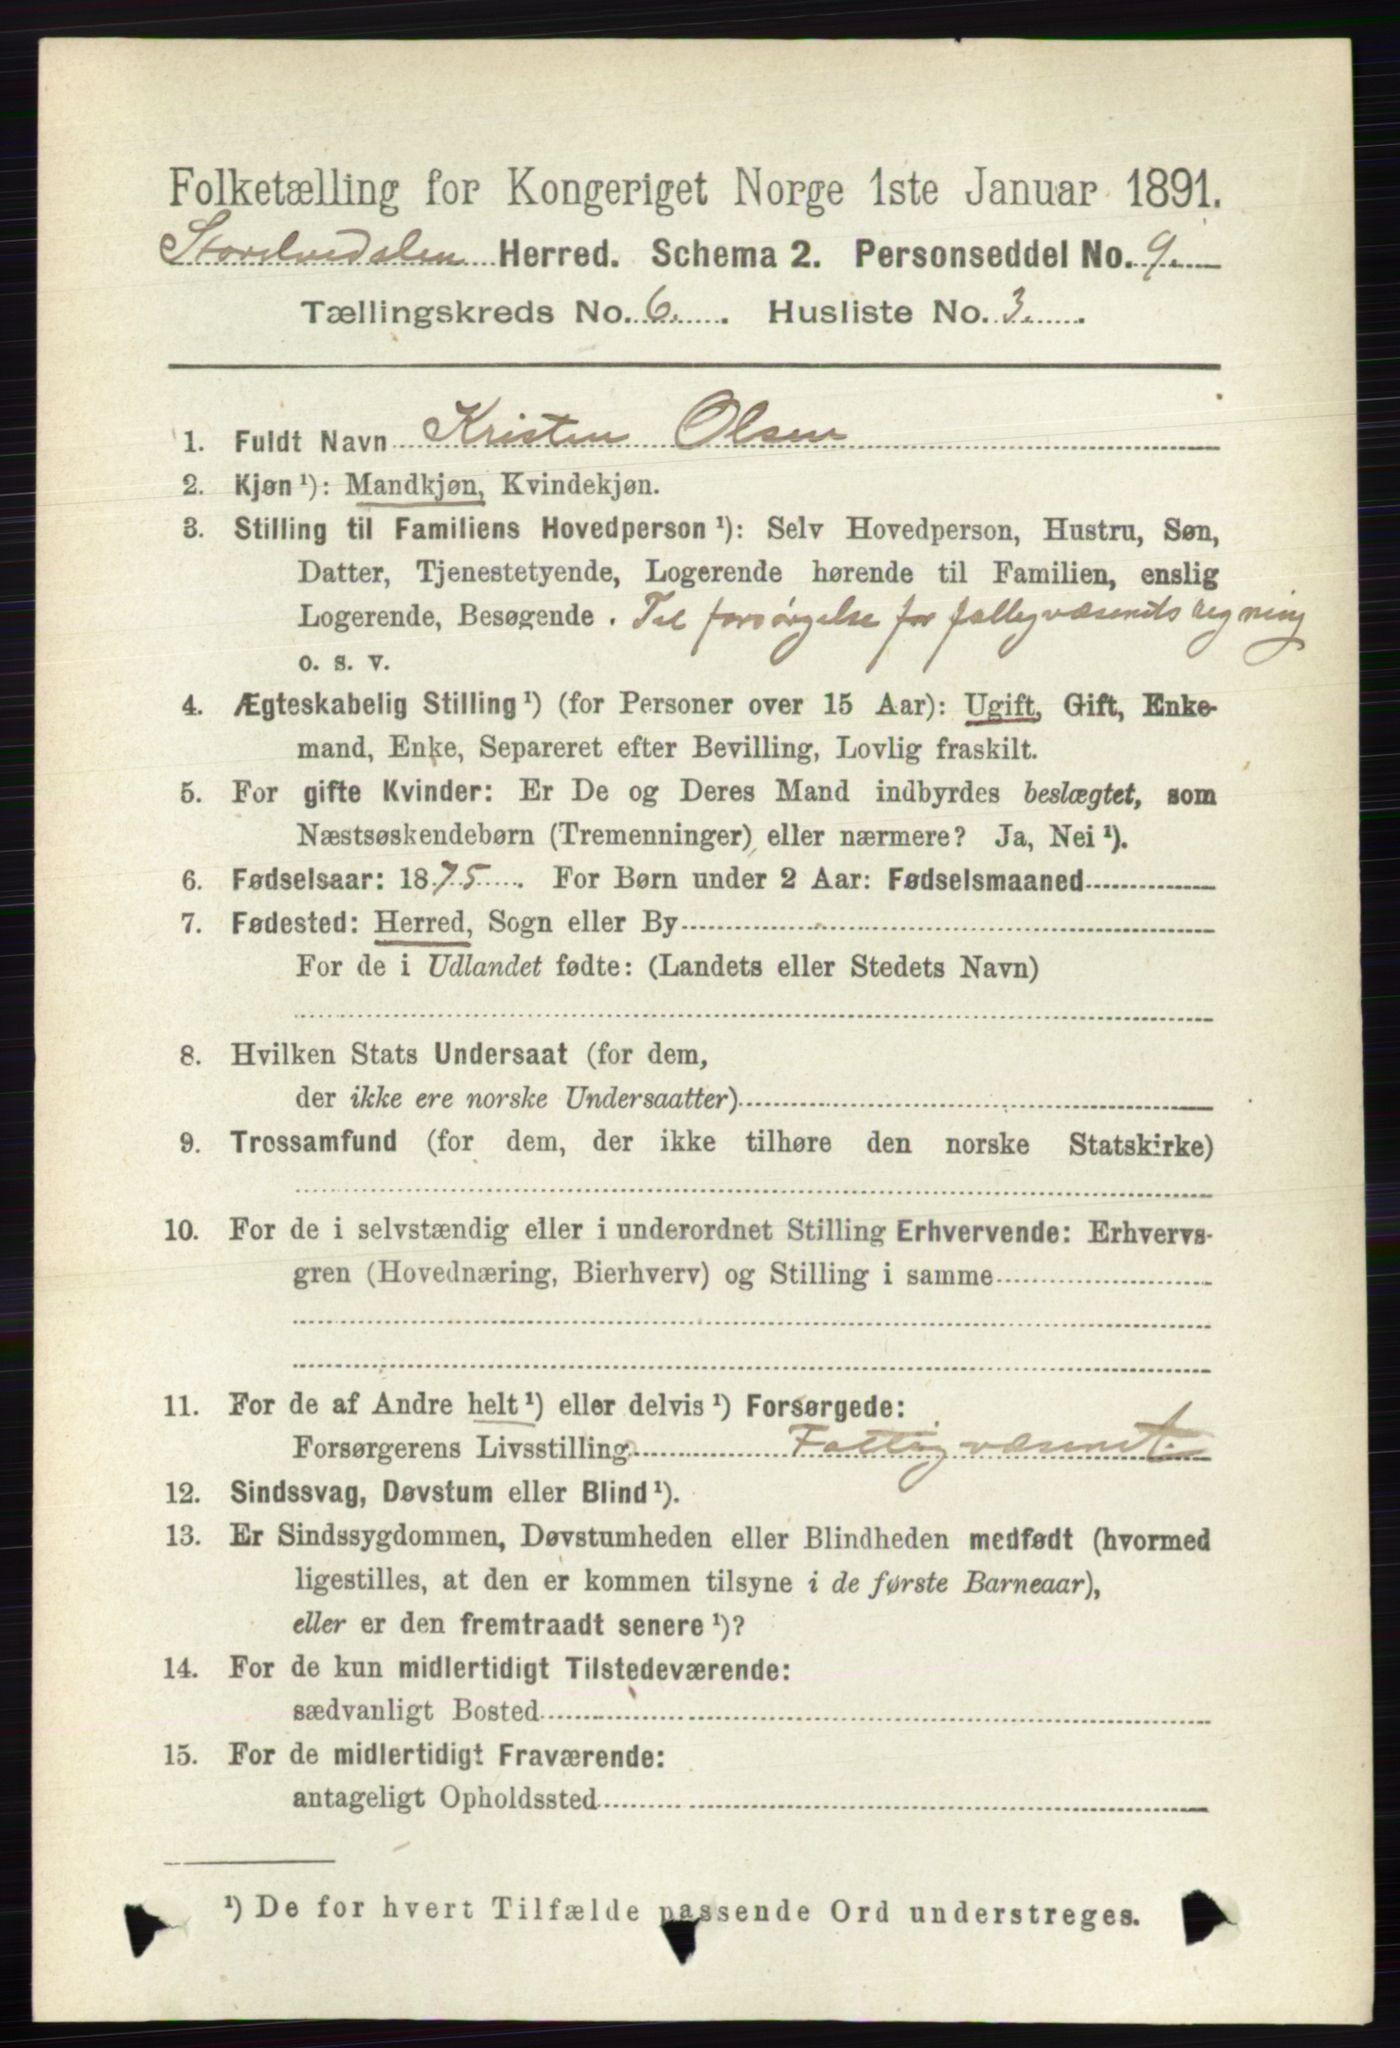 Folketælling for Kongeriget Norge 1ste Januar 1891.
Storelvedalen Herred. Schema 2. Personseddel No. 9.
Tællingskreds No. 6. Husliste No. 3.
1. Fuldt Navn Kristen Olsen
2. Kjøn ¹): Mandkjøn, Kvindekjøn.
3. Stilling til Familiens Hovedperson ¹): Selv Hovedperson, Hustru, Søn,
Datter, Tjenestetyende, Logerende hørende til Familien, enslig
Logerende, Besøgende . Til forsørgelse for fattigvæsenets regning
o. s. v.
4. Ægteskabelig Stilling ¹) (for Personer over 15 Aar): Ugift, Gift, Enke-
mand, Enke, Separeret efter Bevilling, Lovlig fraskilt.
5. For gifte Kvinder: Er De og Deres Mand indbyrdes beslægtet, som
Næstsøskendebørn (Tremenninger) eller nærmere? Ja, Nei ¹).
6. Fødselsaar: 1875. For Børn under 2 Aar: Fødselsmaaned
7. Fødested: Herred, Sogn eller By
For de i Udlandet fødte: (Landets eller Stedets Navn)
8. Hvilken Stats Undersaat (for dem,
der ikke ere norske Undersaatter)
9. Trossamfund (for dem, der ikke tilhøre den norske Statskirke)
10. For de i selvstændig eller i underordnet Stilling Erhvervende: Erhvervs-
gren (Hovednæring, Bierhverv) og Stilling i samme
11. For de af Andre helt ¹) eller delvis ¹) Forsørgede:
Forsørgerens Livsstilling Fattigvæsenet.
12. Sindssvag, Døvstum eller Blind ¹).
13. Er Sindssygdommen, Døvstumheden eller Blindheden medfødt (hvormed
ligestilles, at den er kommen tilsyne i de første Barneaar),
eller er den fremtraadt senere ¹)?
14. For de kun midlertidigt Tilstedeværende:
sædvanligt Bosted
15. For de midlertidigt Fraværende:
antageligt Opholdssted
¹) De for hvert Tilfælde passende Ord understreges.